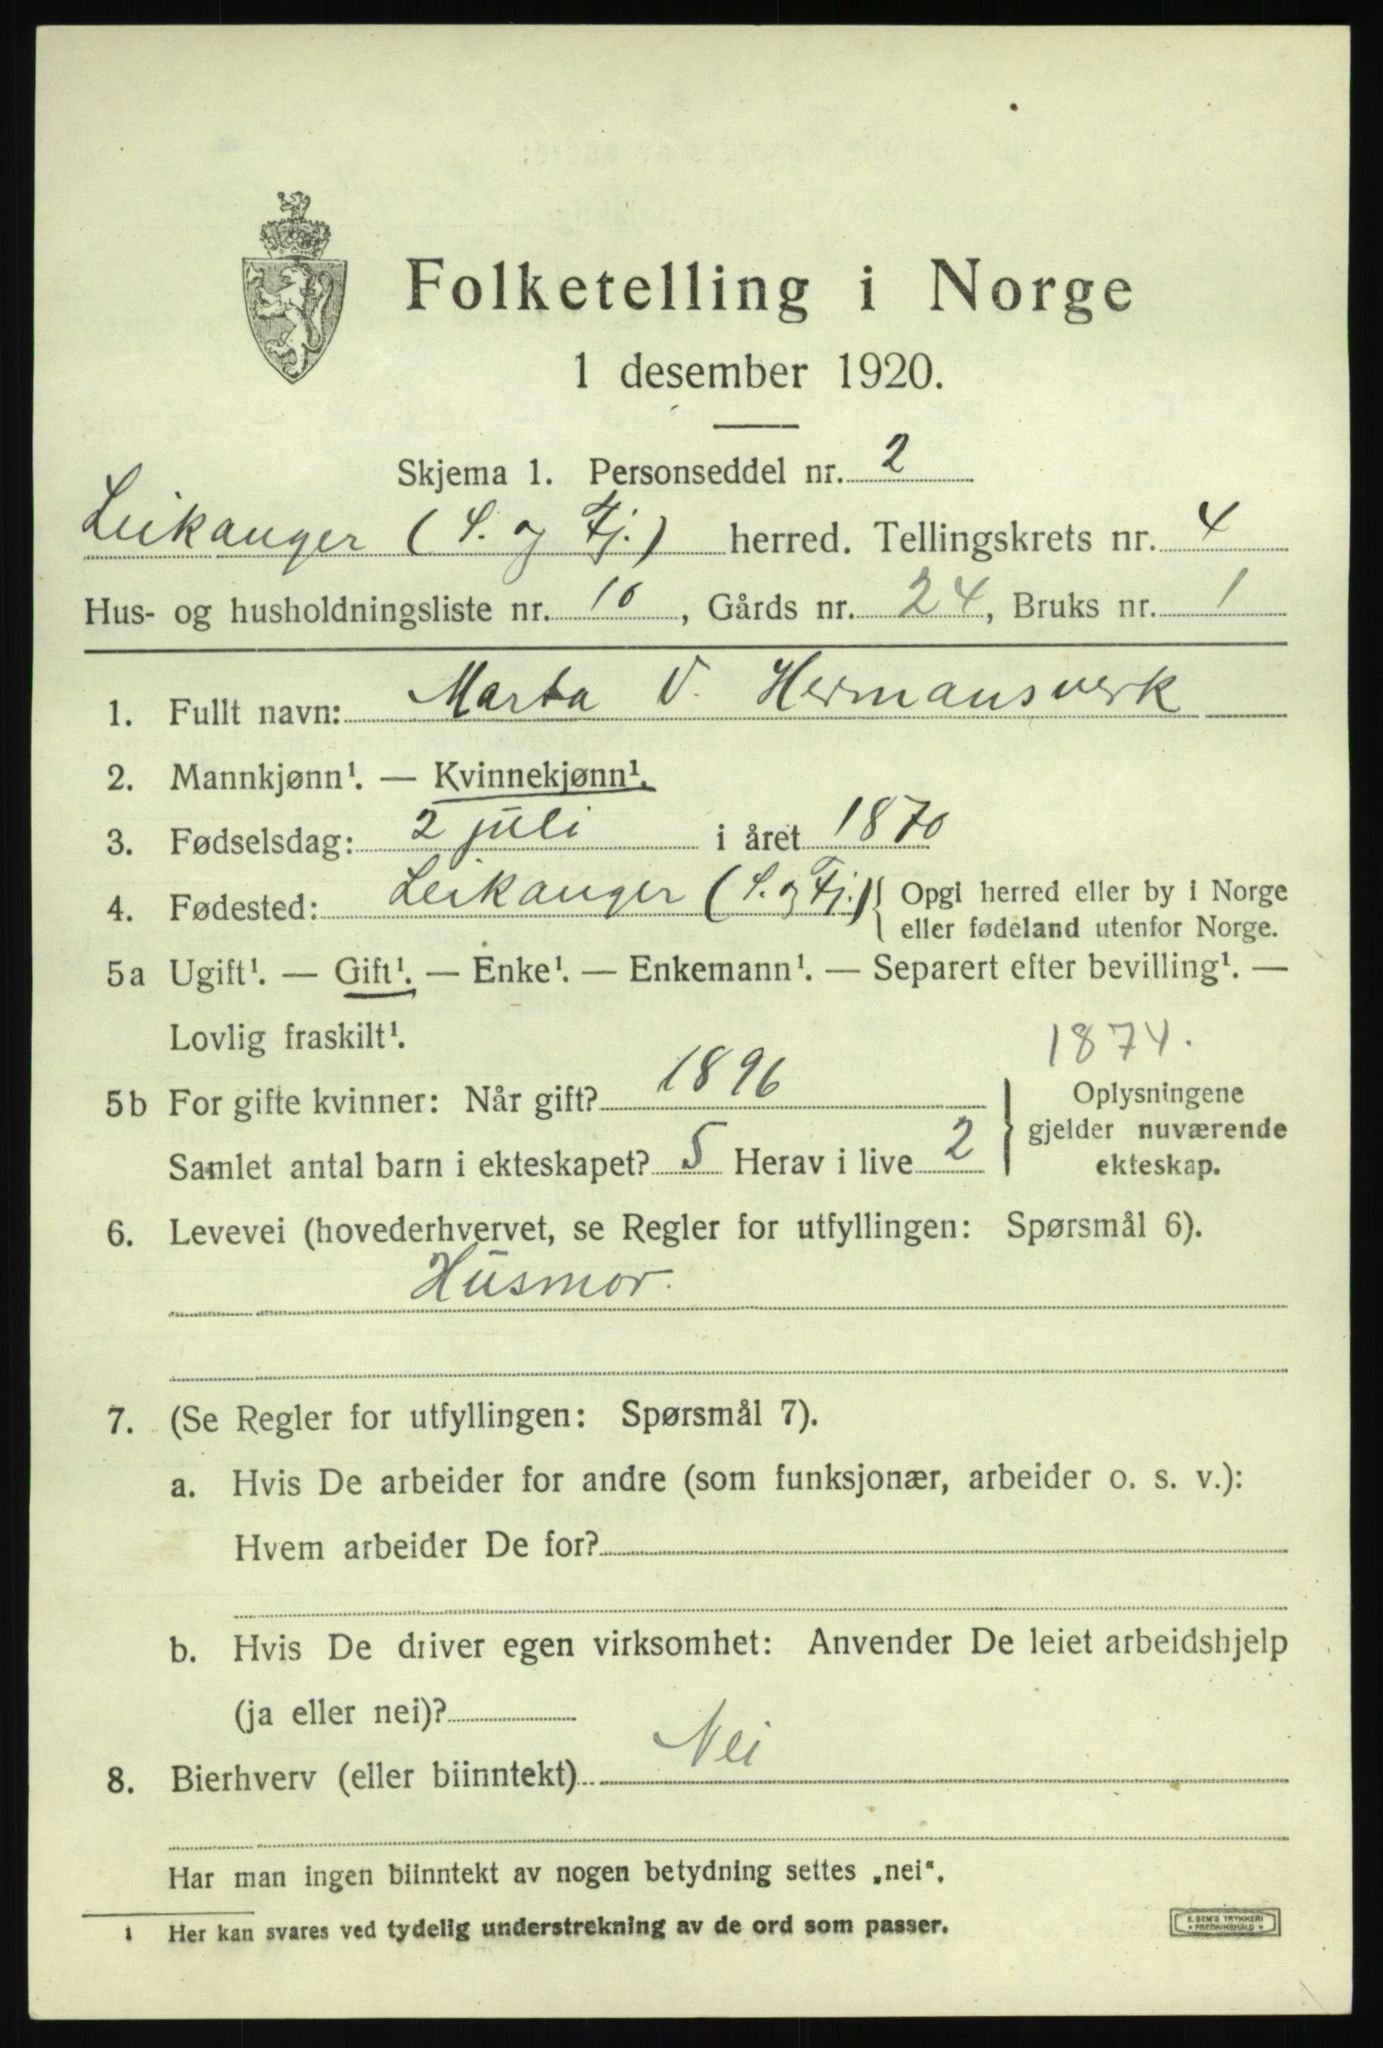 Folketelling i Norge
1 desember 1920.
Skjema 1. Personseddel nr. 2
Leikanger (S. og Fj.) herred. Tellingskrets nr. 4
Hus- og husholdningsliste nr. 10, Gårds nr. 24, Bruks nr. 1
1. Fullt navn: Marta V. Hermansverk
2. Mannkjønn¹. — Kvinnekjønn¹.
3. Fødselsdag: 2 juli i året 1870
4. Fødested: Leikanger (S. og Fj.) { Opgi herred eller by i Norge
eller fødeland utenfor Norge.
5a Ugift¹. — Gift¹. — Enke¹. — Enkemann¹. — Separert efter bevilling¹. —
Lovlig fraskilt¹.
1874.
5b For gifte kvinner: Når gift? 1896
Samlet antal barn i ekteskapet? 5 Herav i live 2
Oplysningene
gjelder nuværende
ekteskap.
6. Levevei (hovederhvervet, se Regler for utfyllingen: Spørsmål 6).
Husmor.
7. (Se Regler for utfyllingen: Spørsmål 7).
a. Hvis De arbeider for andre (som funksjonær, arbeider o. s. v.):
Hvem arbeider De for?
b. Hvis De driver egen virksomhet: Anvender De leiet arbeidshjelp
(ja eller nei)?
8. Bierhverv (eller biinntekt) Nei
Har man ingen biinntekt av nogen betydning settes „nei“.
1 Her kan svares ved tydelig understrekning av de ord som passer.
E. SEM'S TRYKKERI
* FREDRIKSHALD *